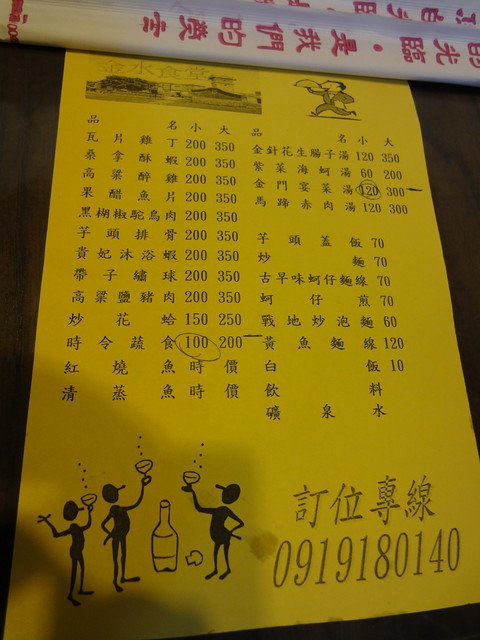 的光臨·是我們的榮幸
金水食堂
品 名 小 大
瓦片雞丁 200 350
桑拿酥蝦 200 350
高粱醉雞 200 350
果醋魚片 200 350
黑楜椒駝鳥肉 200 350
芋頭排骨 200 350
貴妃沐浴蝦 200 350
帶子繡球 200 350
高粱鹽豬肉 200 350
炒花蛤 150 250
時令蔬食 100 200
紅燒魚 時 價
清蒸魚 時 價
品 名 小 大
金針花生腸子湯 120 350
紫菜海蚵湯 60 200
金門宴菜湯 120 300
馬蹄赤肉湯 120 300
芋頭蓋飯 70
炒麵 70
古早味蚵仔麵線 70
蚵仔煎 70
戰地炒泡麵 60
黃魚麵線 120
白飯 10
飲料
礦泉水
訂位專線
0919180140